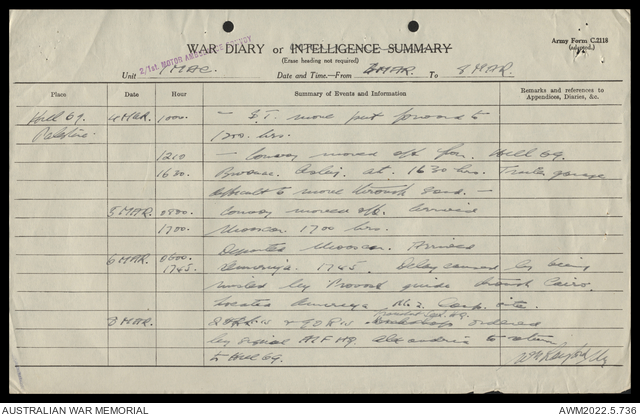 WAR DIARY or INTELLIGENCE SUMMARY
Army Form C.2118
(adapted.)
(Erase heading not required)
2/1st. MOTOR
Unit 1 MAC. Date and Time—From 4 MAR. To 8 MAR.
Place Date Hour Summary of Events and Information Remarks and references to Appendices, Diaries, &c.
Hill 69 4 MAR. 1000. — move put forward to
Palestine. 1200 hrs.
1210 — Convoy moved off from Hill 69
1630. Bivouac at 1630 hrs.
difficult to move through sand. —
5 MAR. 0800. Convoy moved off. Arrived
1700 Moascar 1700 hrs.
Departed Moascar. Arrived
6 MAR. 0600.
1745. Amerya. 1745. Delay caused by being
by Provost guide through Cairo.
located Amerya No. 2. Camp site.
8 MAR. & ordered
by signal HQ Alexandria to return
to Hill 69.
AUSTRALIAN WAR MEMORIAL
AWM2022.5.736